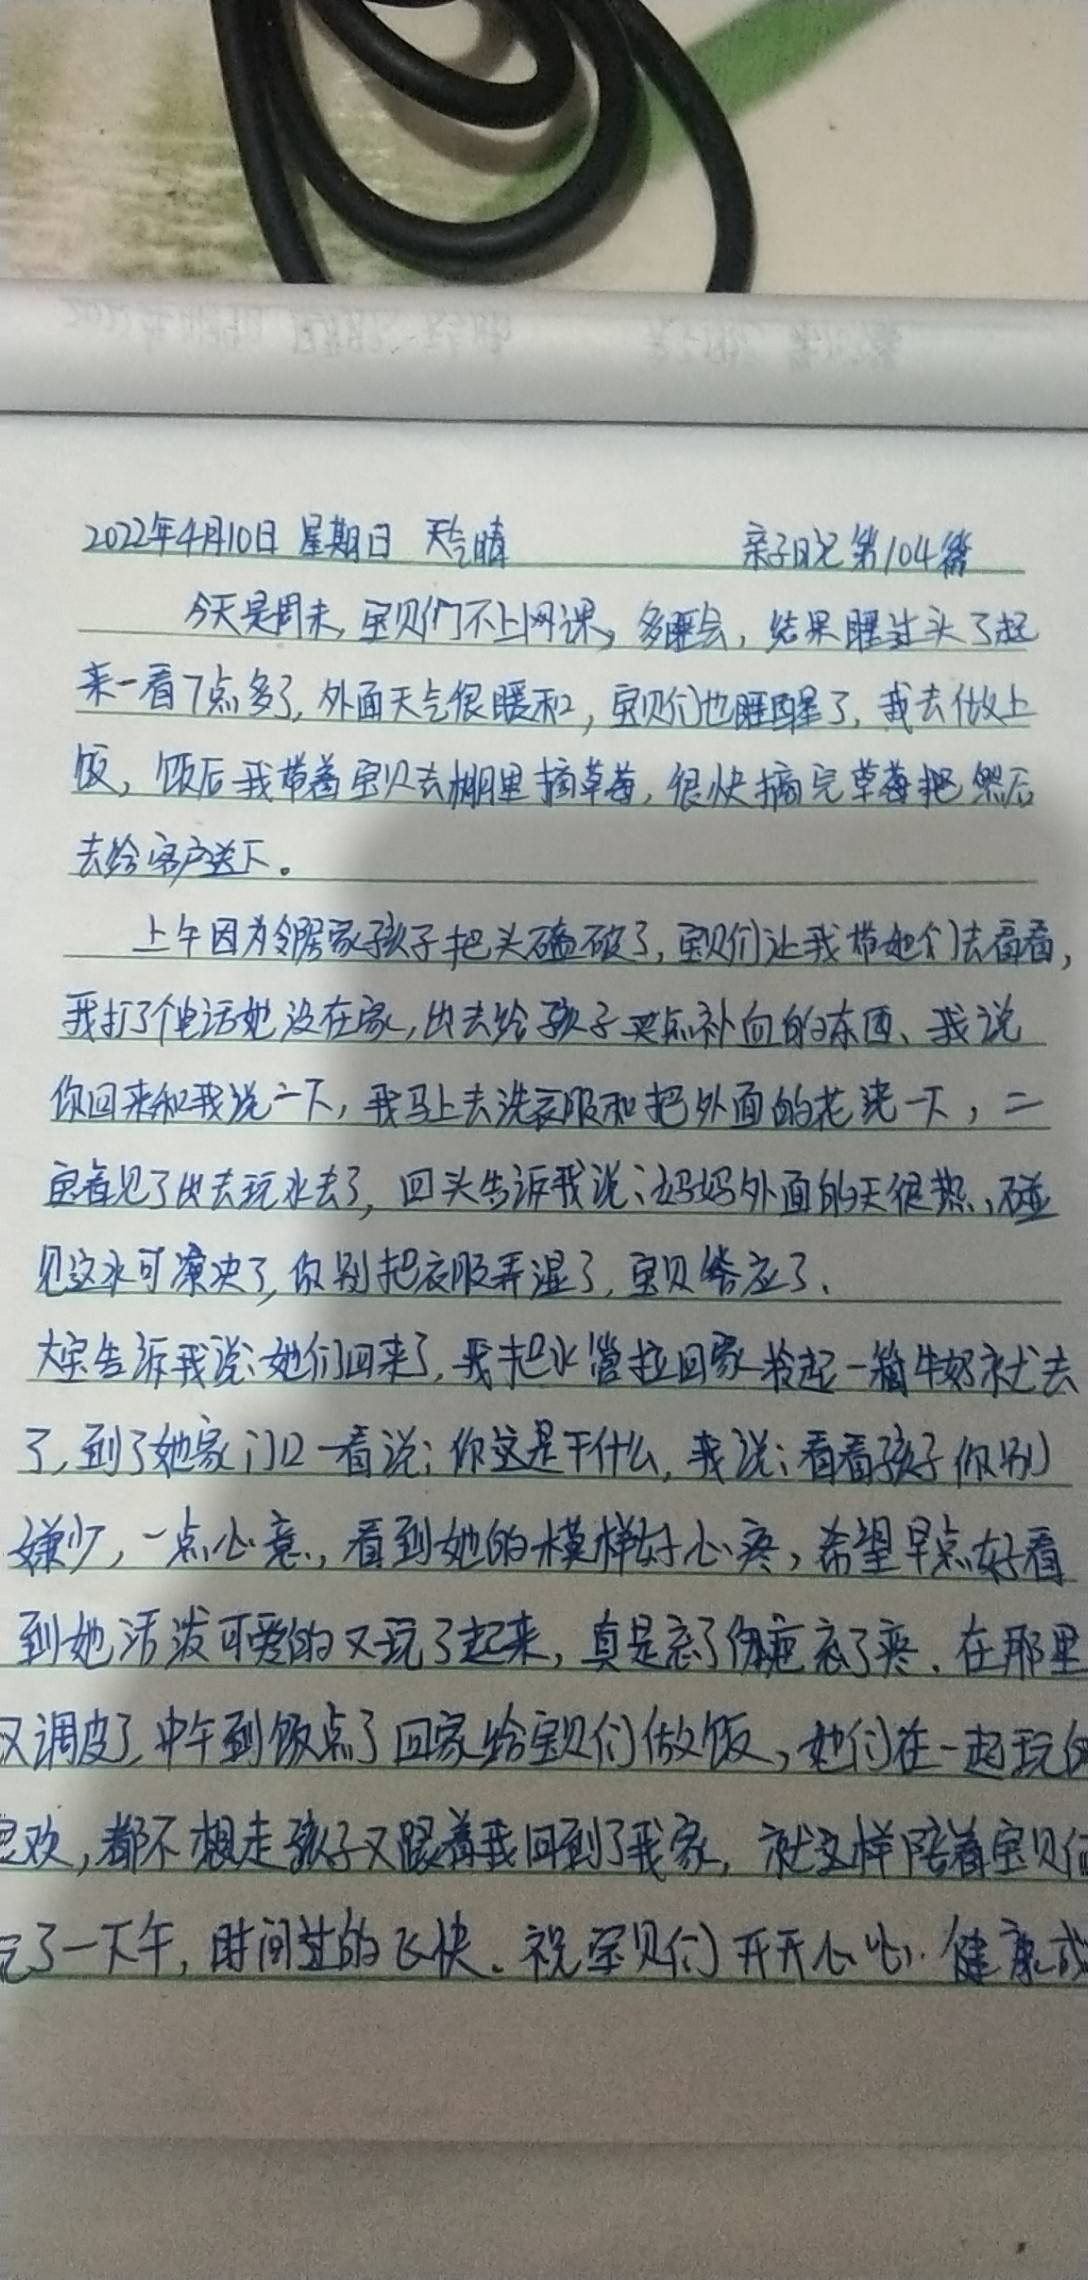 2022年4月10日 星期日 天气晴 亲子日记第104篇
今天是周末,宝贝们不上网课,多睡会,结果睡过头了起
来一看7点多了,外面天气很暖和,宝贝们也睡醒了,我去做上
饭,饭后我带着宝贝去棚里摘草莓,很快摘完草莓把 然后
去给客户送下。
上午因为邻居家孩子把头磕破了,宝贝们让我带她们去看看,
我打了个电话她没在家,出去给孩子买点补血的东西、我说
你回来和我说一下,我马上去洗衣服和把外面的花浇一下,二
宝看见了出去玩水去了,回头告诉我说:妈妈外面的天很热,碰
见这水可凉快了,你别把衣服弄湿了,宝贝答应了.
大宝告诉我说:她们回来了,我把水管拉回家拎起一箱牛奶就去
了,到了她家门口一看说:你这是干什么,我说:看看孩子你别
嫌少,一点心意,看到她的模样好心疼,希望早点好看
到她活泼可爱的又玩了起来,真是忘了伤疤忘了疼.在那里
又调皮了,中午到饭点了回家给宝贝们做饭,她们在一起玩
欢,都不想走孩子又跟着我回到了我家,就这样陪着宝贝们
玩了一下午,时间过的飞快。祝宝贝们开开心心.健康成